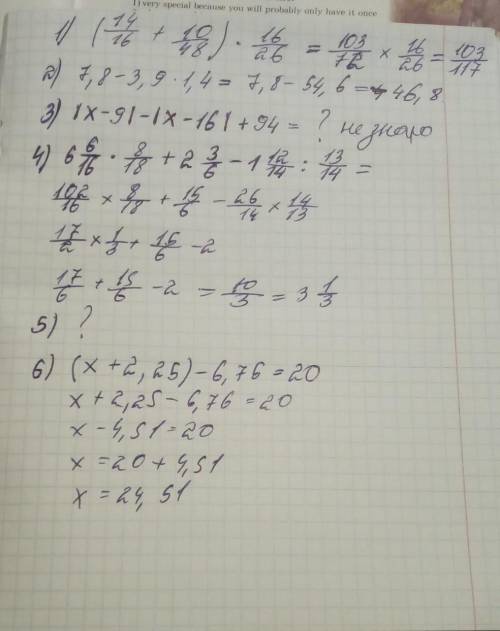 1) very special because you will probably only have it once
1) (14/16 + 10/48) · 16/26 = 103/72 × 16/26 = 103/117
2) 7,8 – 3,9 · 1,4 = 7,8 – 54,6 = 46,8
3) |x – 9| – |x – 16| + 94 = ? не знаю
4) 6 6/16 · 8/18 + 2 3/6 – 1 12/14 : 13/14 =
102/16 × 8/18 + 15/6 – 26/14 × 14/13
17/2 × 1/3 + 15/6 – 2
17/6 + 15/6 – 2 = 10/3 = 3 1/3
5) ?
6) (x + 2,25) – 6,76 = 20
x + 2,25 – 6,76 = 20
x – 4,51 = 20
x = 20 + 4,51
x = 24,51